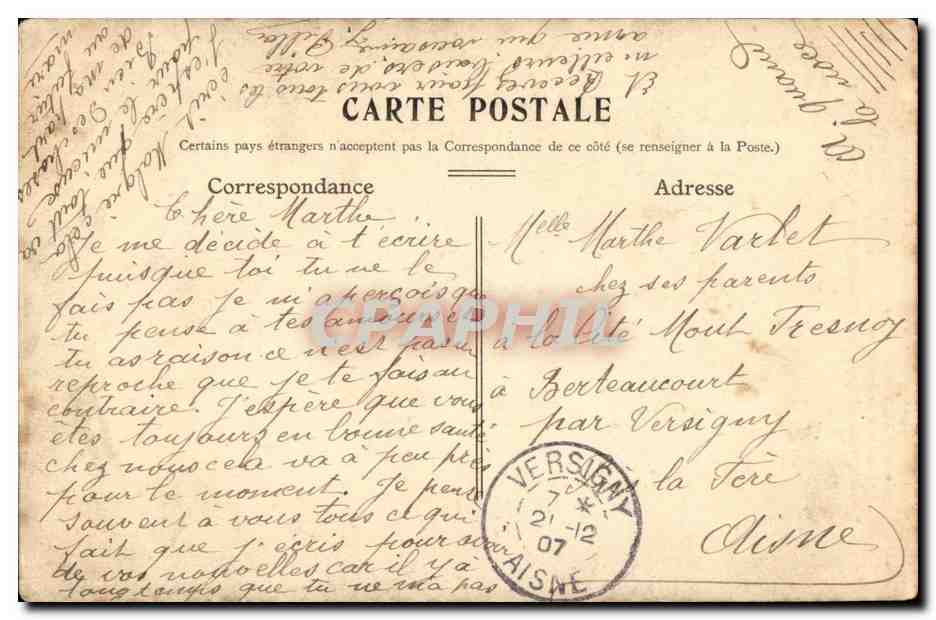 CARTE POSTALE
Certains pays étrangers n'acceptent pas la Correspondance de ce côté (se renseigner à la Poste.)
Correspondance
Chère Marthe.
Je me décide à t'écrire
puisque toi tu ne le
fais pas je m'aperçois que
tu pense à tes amours et
tu as raison ce n'est pas un
reproche que je te fais au
contraire. J'espère que vous
êtes toujours en bonne santé
chez nous cela va à peu près
pour le moment. Je pense
souvent à vous tous ce qui
fait que j'écris pour avoir
de vos nouvelles car il y a
longtemps que tu ne m'a pas
écrit Malgré cela
j'espère que tout va
pour le mieux
de
au futur
mari
Et Recevez pour vous tous les
meilleurs baisers de votre
amie qui
à quand
la noce
Adresse
Melle Marthe Varlet
chez ses parents
à la Cité Mont Fresnoy
à Berteaucourt
par Versigny
la Fère
Aisne
VERSIGNY
7 *
21 -12
07
AISNE
CPAPHIL